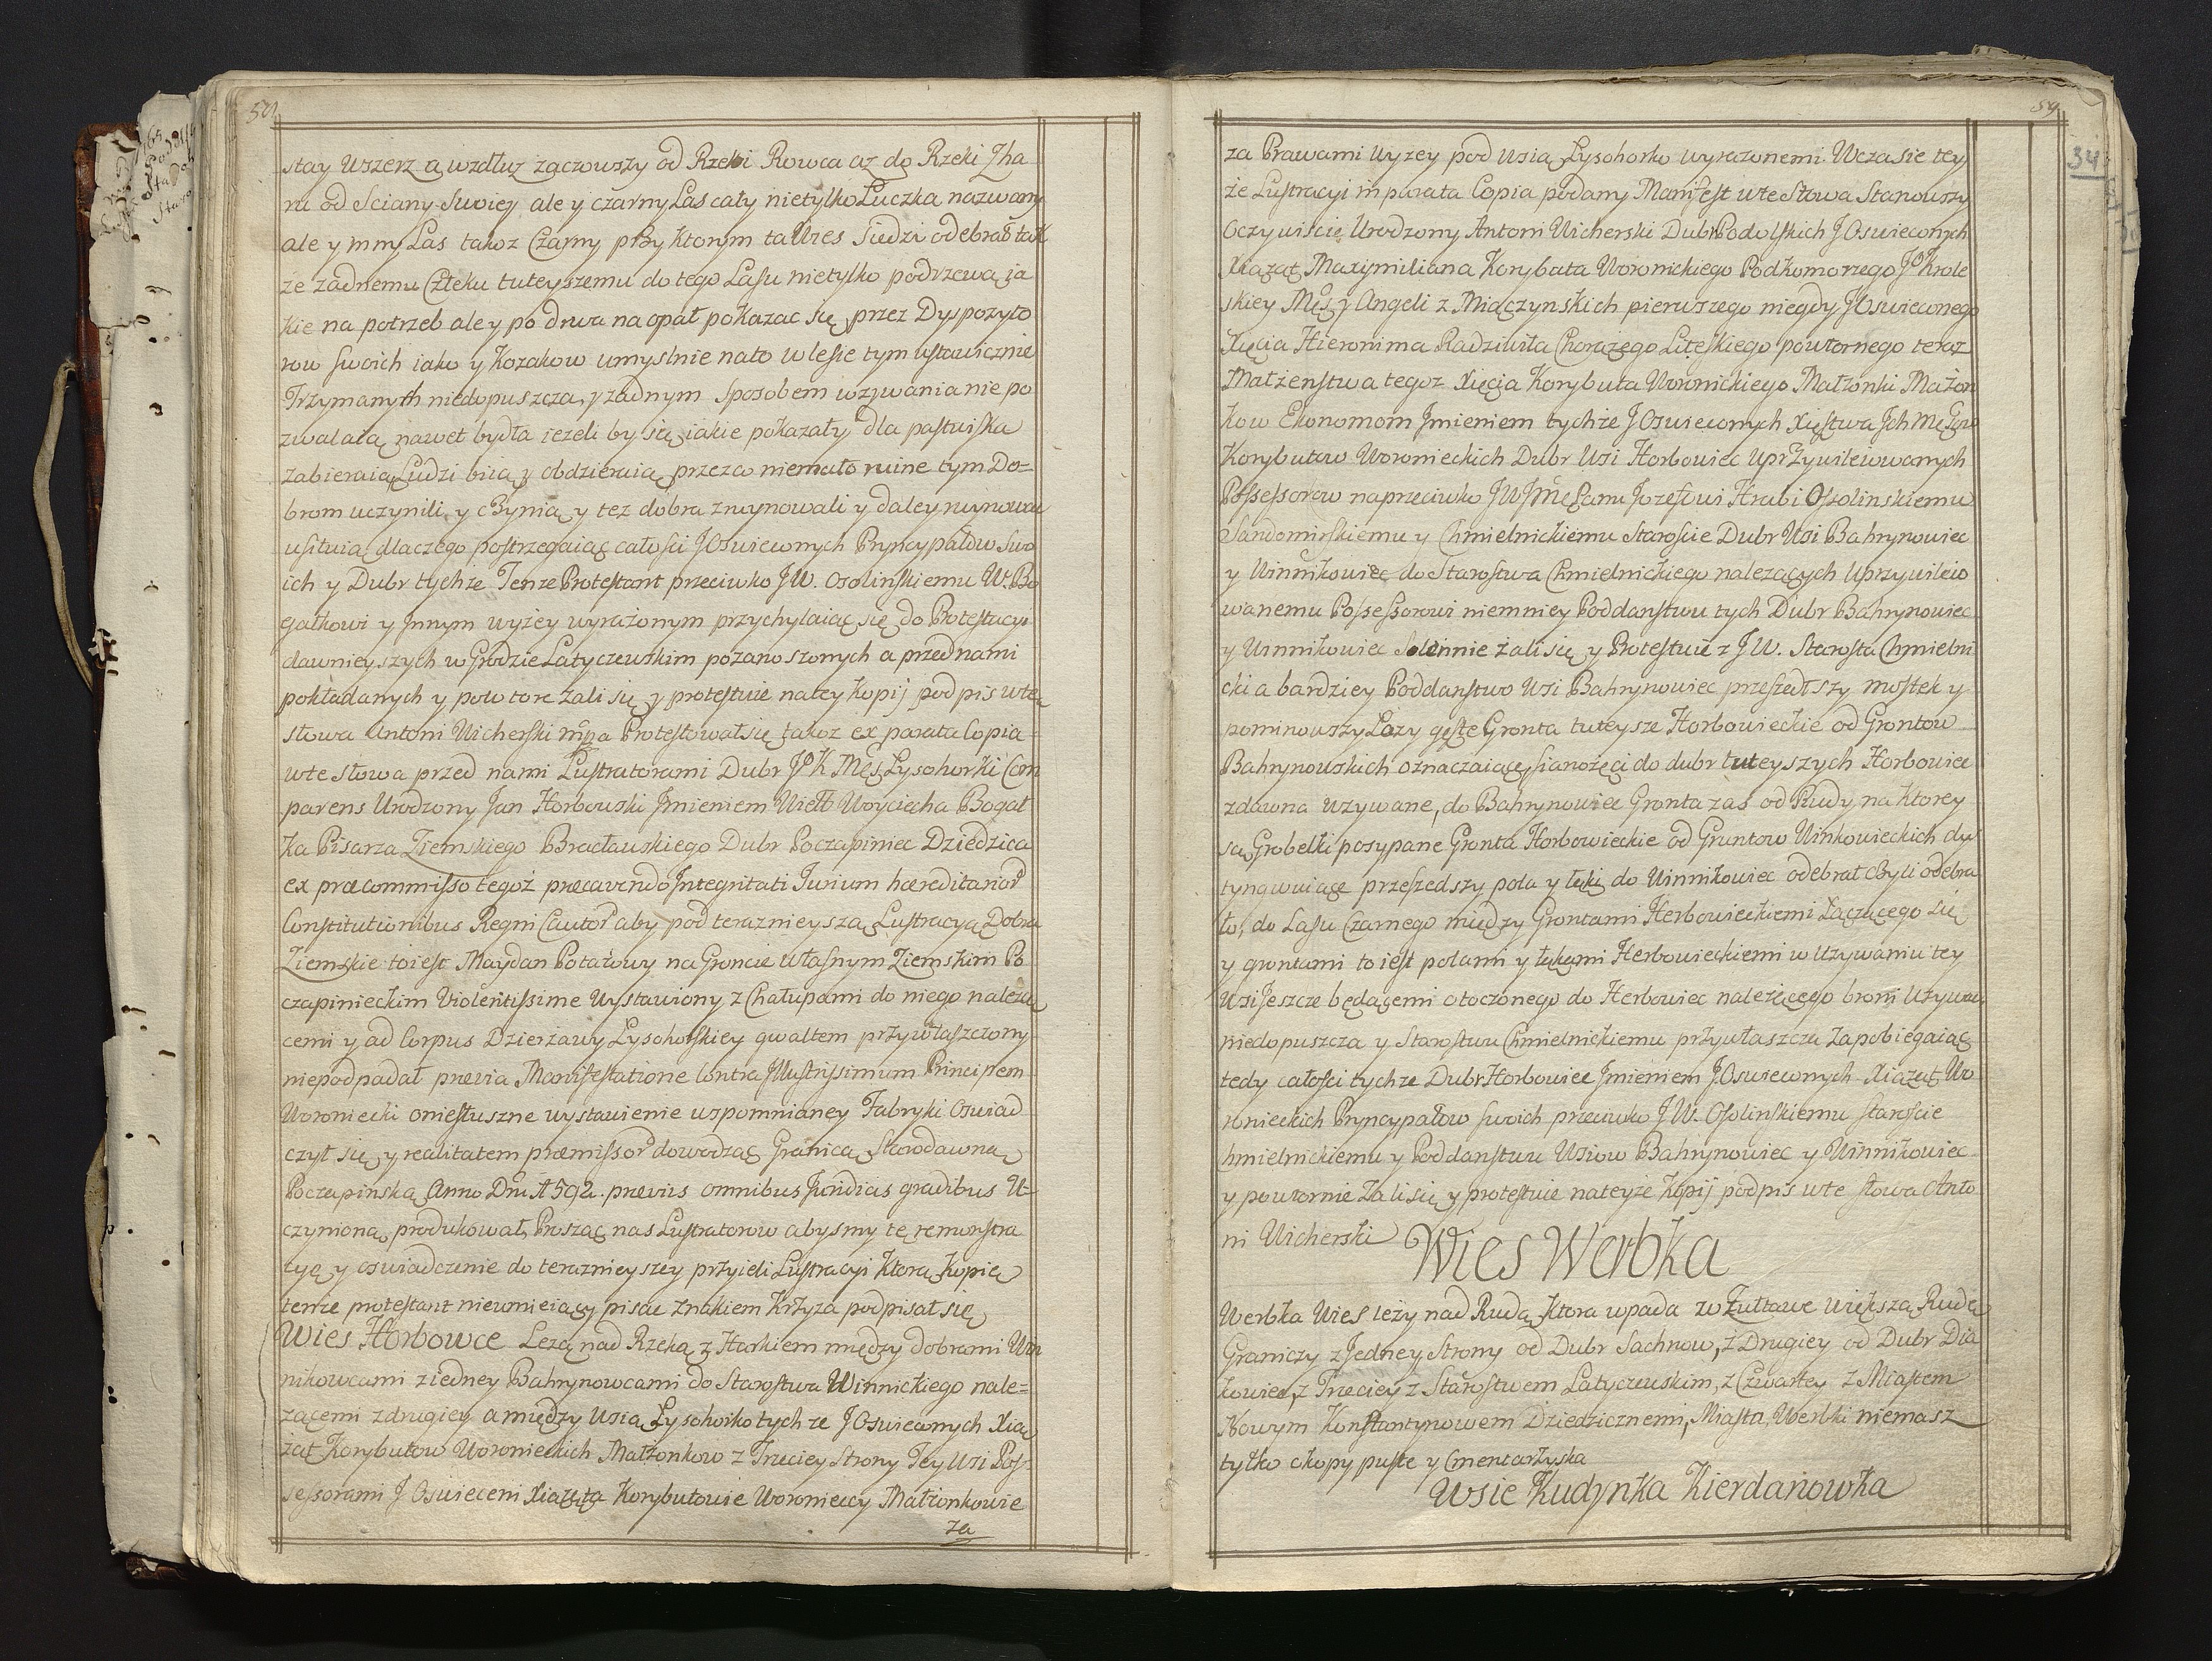 58
stay wszerz a wzdłuz zączowszy od Rzeki Rowca az do Rzeki Zha
ru od Sciany Swoiey ale y czarny Las cały nietylko Łuczka nazwany
ale y inny Las takoz Czarny przy ktorym ta Wies Siedzi odebrał tak
ze zadnemu Człeku tuteyszemu do tego Lasu nietylko podrzewa ja
kie na potrzeb ale y po drwa na opał pokazac się przez Dyspozyto
row swoich iako y Kozakow umyslnie nato w lesie tym ustawicznie
Trzymanych niedopuszcza, y zadnym Sposobem wzywania nie po
zwalaią nawet bydła iezeli by się iakie pokazały dla pastwiska
zabieraią Ludzi biią y obdzieraią przezco niemało ruine tym Do=
brom uczynili y czynią y tez dobra zruynowali y daley ruynowac
usiłuią dlaczego postrzegaiąc całosci JOswieconych Pryncypałow Swo
ich y Dubr tychze Tenze Protestant przeciwko JW. Osolinskiemu W. Bo
gatkowi y Jnnym wyżey wyrażonym przychylaiąc się do Protestacyi
dawnieyszych w Grodzie Latyczewskim pozanoszonych a przed nami
pokładanych y powtore żali się y protestuie na tey kopij podpis wte
słowa Antoni Wicherski mpa Protestował się takoz ex parata Copia
wte słowa przed nami Lustratorami Dubr JoK Mci Łysohorki Com
parens Urodzony Jan Horbowski Jmieniem Wiel Woyciecha Bogat
ka Pisarza Ziemskiego Bracławskiego Dubr Poczapiniec Dziedzica
ex præcommisso tegoż præcavendo Jntegritati Jurium hæreditarior
Constitutionibus Regni Cautor aby pod teraznieyszą Lustracyą Dobra
Ziemskie toiest Maydan Potażowy na Gruncie własnym Ziemskim Po
czapinieckim Violentissime Wystawiony z Chałupami do niego należą
cemi y ad Corpus Dzierżawy Łysohorskiey gwałtem przywłaszczony
niepodpadał prævia Manifestatione contra Jllustrissimum Principem
Woroniecki oniesłuszne wystawienie wspomnianey Fabryki Oswiad
czył się y realitatem præmissor dowodząc Granicą Starodawną
Poczapinską Anno Dni 1592. præviis omnibus Juridicis gradibus U=
czynioną produkował, Prosząc nas Lustratorow abysmy tę remonstra
cyę y oswiadczenie do teraznieyszey przyieli Lustracyi ktorą Kopię
tenze protestant nieumieiący pisac znakiem Krzyza podpisał się
Wies Horbowce Leżą nad Rzeką z Harkiem między dobrami Win
nikowcami ziedney Bahrynowcami do Starostwa Winnickiego nale=
zącemi zdrugiey a między Wsią Łysohorko tychze JOswieconych Xią
żąt Korybutow Woronieckich Małżonkow z Trzeciey Strony Tey Wsi Pos=
sessorami JOswieceni Xiążęta Korybutowie Woronieccy Małżonkowie
za
59
34
za Prawami wyzey pod Wsią Łysohorko wyrazonemi. Wczasie tey
że Lustracyi in parata Copia podany Manifest wte Słowa Stanowszy
Oczywiscie Urodzony Antoni Wicherski Dubr Podolskich JOswieconych
Xiążąt Maxymiliana Korybuta Woronickiego Podkomorzego Jo Krole
skiey Mci y Angeli z Miączynskich pierwszego niegdy JOswieconego
Xięcia Hieronima Radziwiła Chorążego Liteskiego powtornego teraz
Małżenstwa tegoz Xięcia Korybuta Woronickiego Małżonki Małżon
kow Ekonomom Jmieniem tychże JOswieconych Xięstwa Jch Mciow
Korybutow Woronieckich Dubr Wsi Horbowiec Uprzywileiowanych
Possessorow naprzeciwko JWJmc Panu Jozefowi Hrabi Ossolinskiemu
Sandomirskiemu y Chmielnickiemu Staroscie Dubr Wsi Bahrynowiec
y Winnikowiec do Starostwa Chmielnickiego nalezących Uprzywileio
wanemu Possessorowi niemniey Poddanstwu tych Dubr Bahrynowiec
y Winnikowiec Solennie żali się y Protestuie z JW. Starosta Chmielni
cki a bardziey Poddanstwo Wsi Bahrynowiec przeszedłszy mostek y
pominowszy Łozy gęste Gronta tuteysze Horbowieckie od Grontow
Bahrynowskich oznaczaiące, sianożęci do dubr tuteyszych Horbowiec
zdawna uzywane, do Bahrynowiec Gronta zas od Rudy na ktorey
są Grobelki posypane Gronta Horbowieckie od Gruntow Winkowieckich dys
tyngwuiące przeszedszy pola y łąki do Winnikowiec odebrał czyli odebra
ło, do Lasu Czarnego między Grontami Herbowieckiemi Łączącego się
y grontami to iest polami y łąkami Herbowieckiemi w Uzywaniu tey
Wsi Jeszcze będącemi otoczonego do Herbowiec należącego broni Używac
niedopuszcza y Starostwu Chmielnickiemu przywłaszcza Zapobiegaiąc
tedy całosci tychze Dubr Horbowiec Jmieniem JOswieconych Xiążąt Wo
ronieckich Pryncypałow swoich przeciwko JW. Osolinskiemu Staroscie
Chmielnickiemu y Poddanstwu Wsiow Bahrynowiec y Winnikowiec
y powtornie Żali się y protestuie nateyze Kopij podpis wte słowa Anto
ni Wicherski
Wies Werbka
Werbka Wies leży nad Rudą ktora wpada w Żułtawe większą Rudę
Graniczy z Jedney Strony od Dubr Sachnow, z Drugiey od Dubr Dia
kowiec, z Trzeciey z Starostwem Latyczewskim, z Czwartey z Miastem
Nowym Konstantynowem Dziedzicznemi, Miasta Werbki niemasz
tylko okopy puste y Cmentarzyska
Wsie Kudynka Kierdanowka